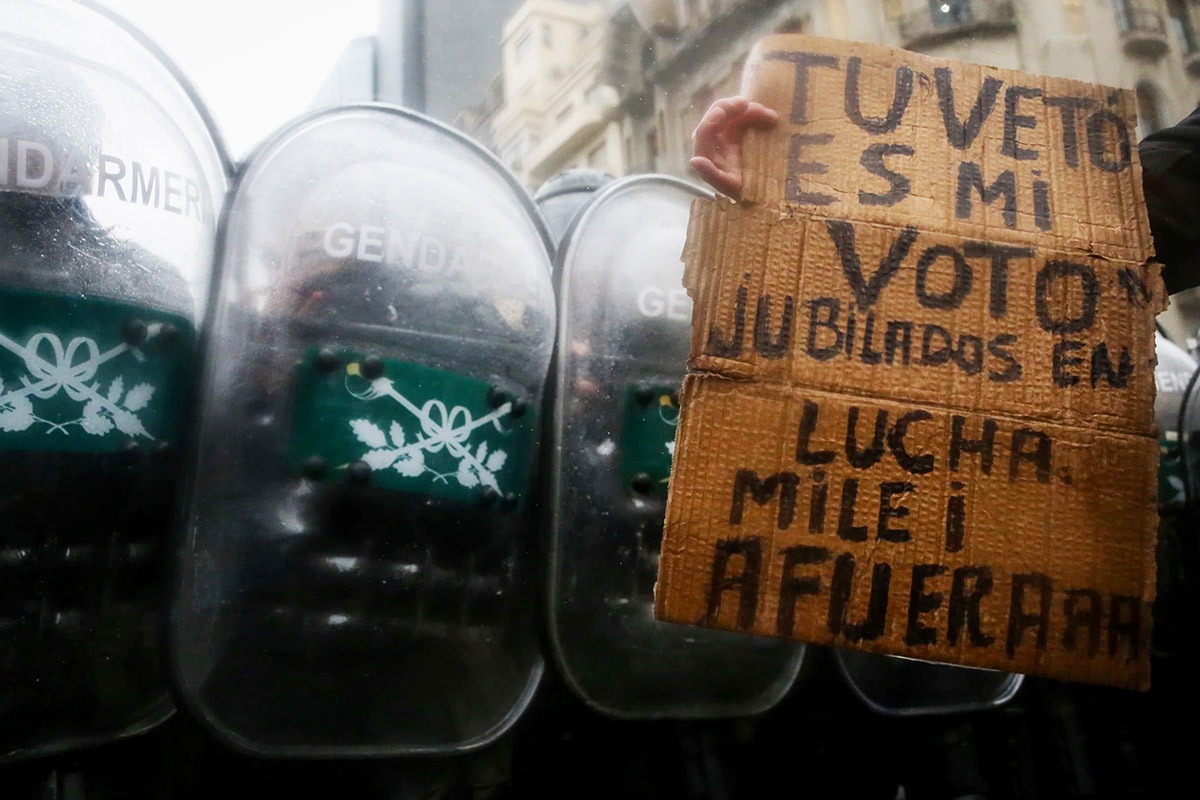 NDARMER
GENDA
GE
TU VETO
ES MI
VOTO N
JUBILADOS EN
LUCHA.
MILEI
AFUERAAAA